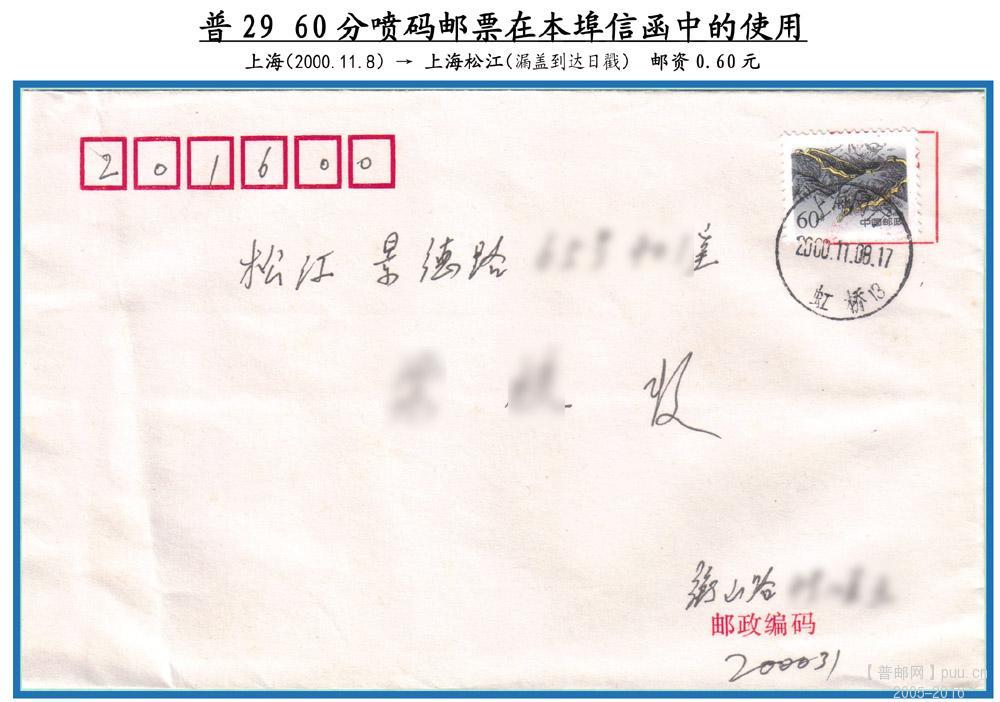 普29 60分喷码邮票在本埠信函中的使用
上海(2000.11.8) → 上海松江(漏盖到达日戳) 邮资0.60元
201600
60
中国邮政
上海
2000.11.08.17
虹桥13
松江 景德路 室
收
衡山路
邮政编码
200031
【普邮网】puu.cn
2005-2016